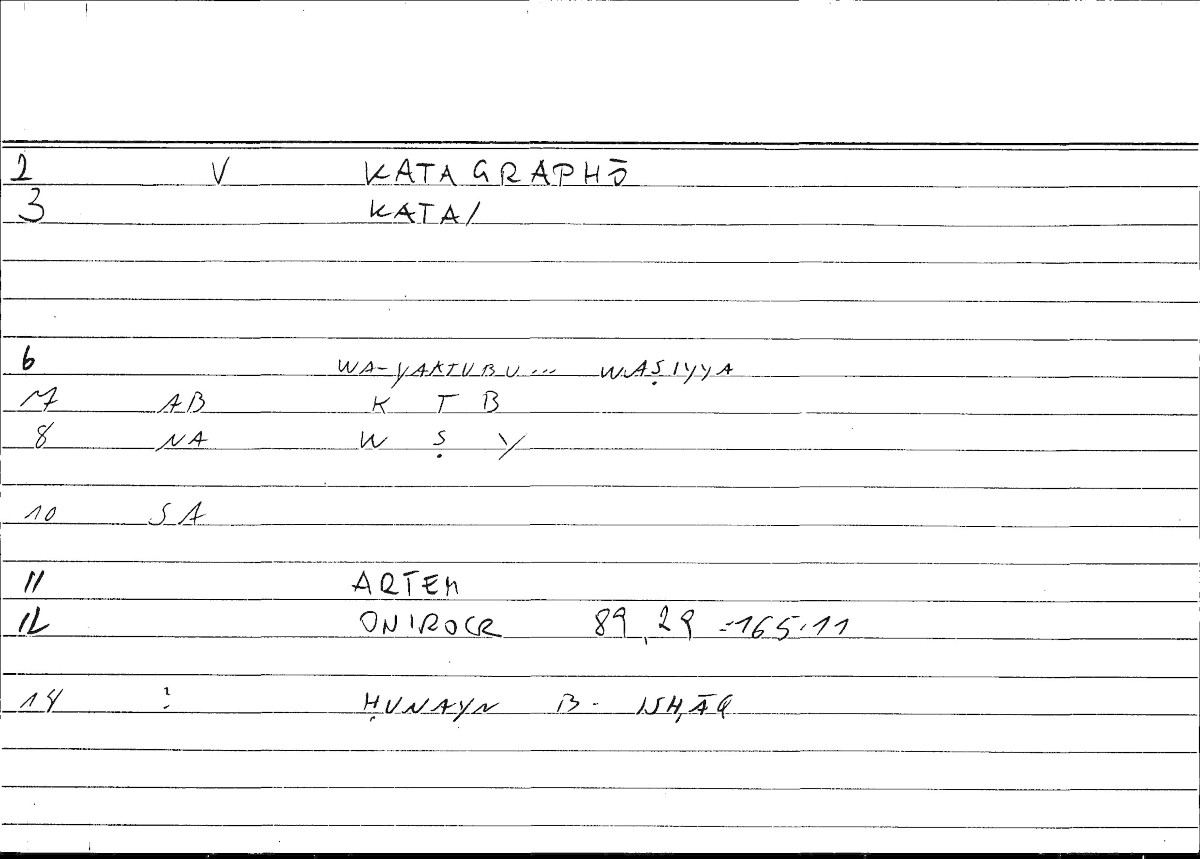 2 V KATAGRAPHŌ
3 KATA/
6 WA-YAKTUBU... WAṢIYYA
7 AB K T B
8 NA W Ṣ Y
10 SA
11 ARTEM
12 ONIROCR 89,29 =165.11
14 : ḤUNAYN B. ISḤĀQ